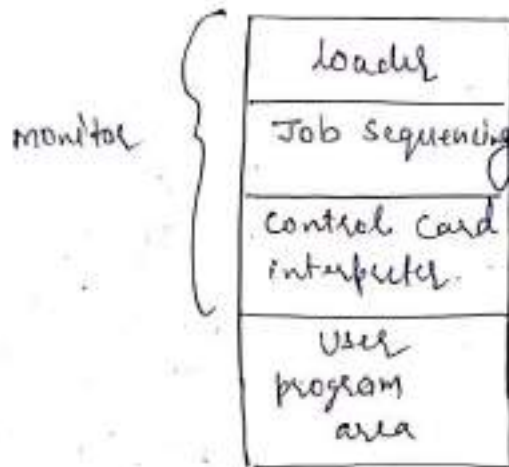 loader
monitor
Job Sequencing
control card
interpreter.
user
program
area